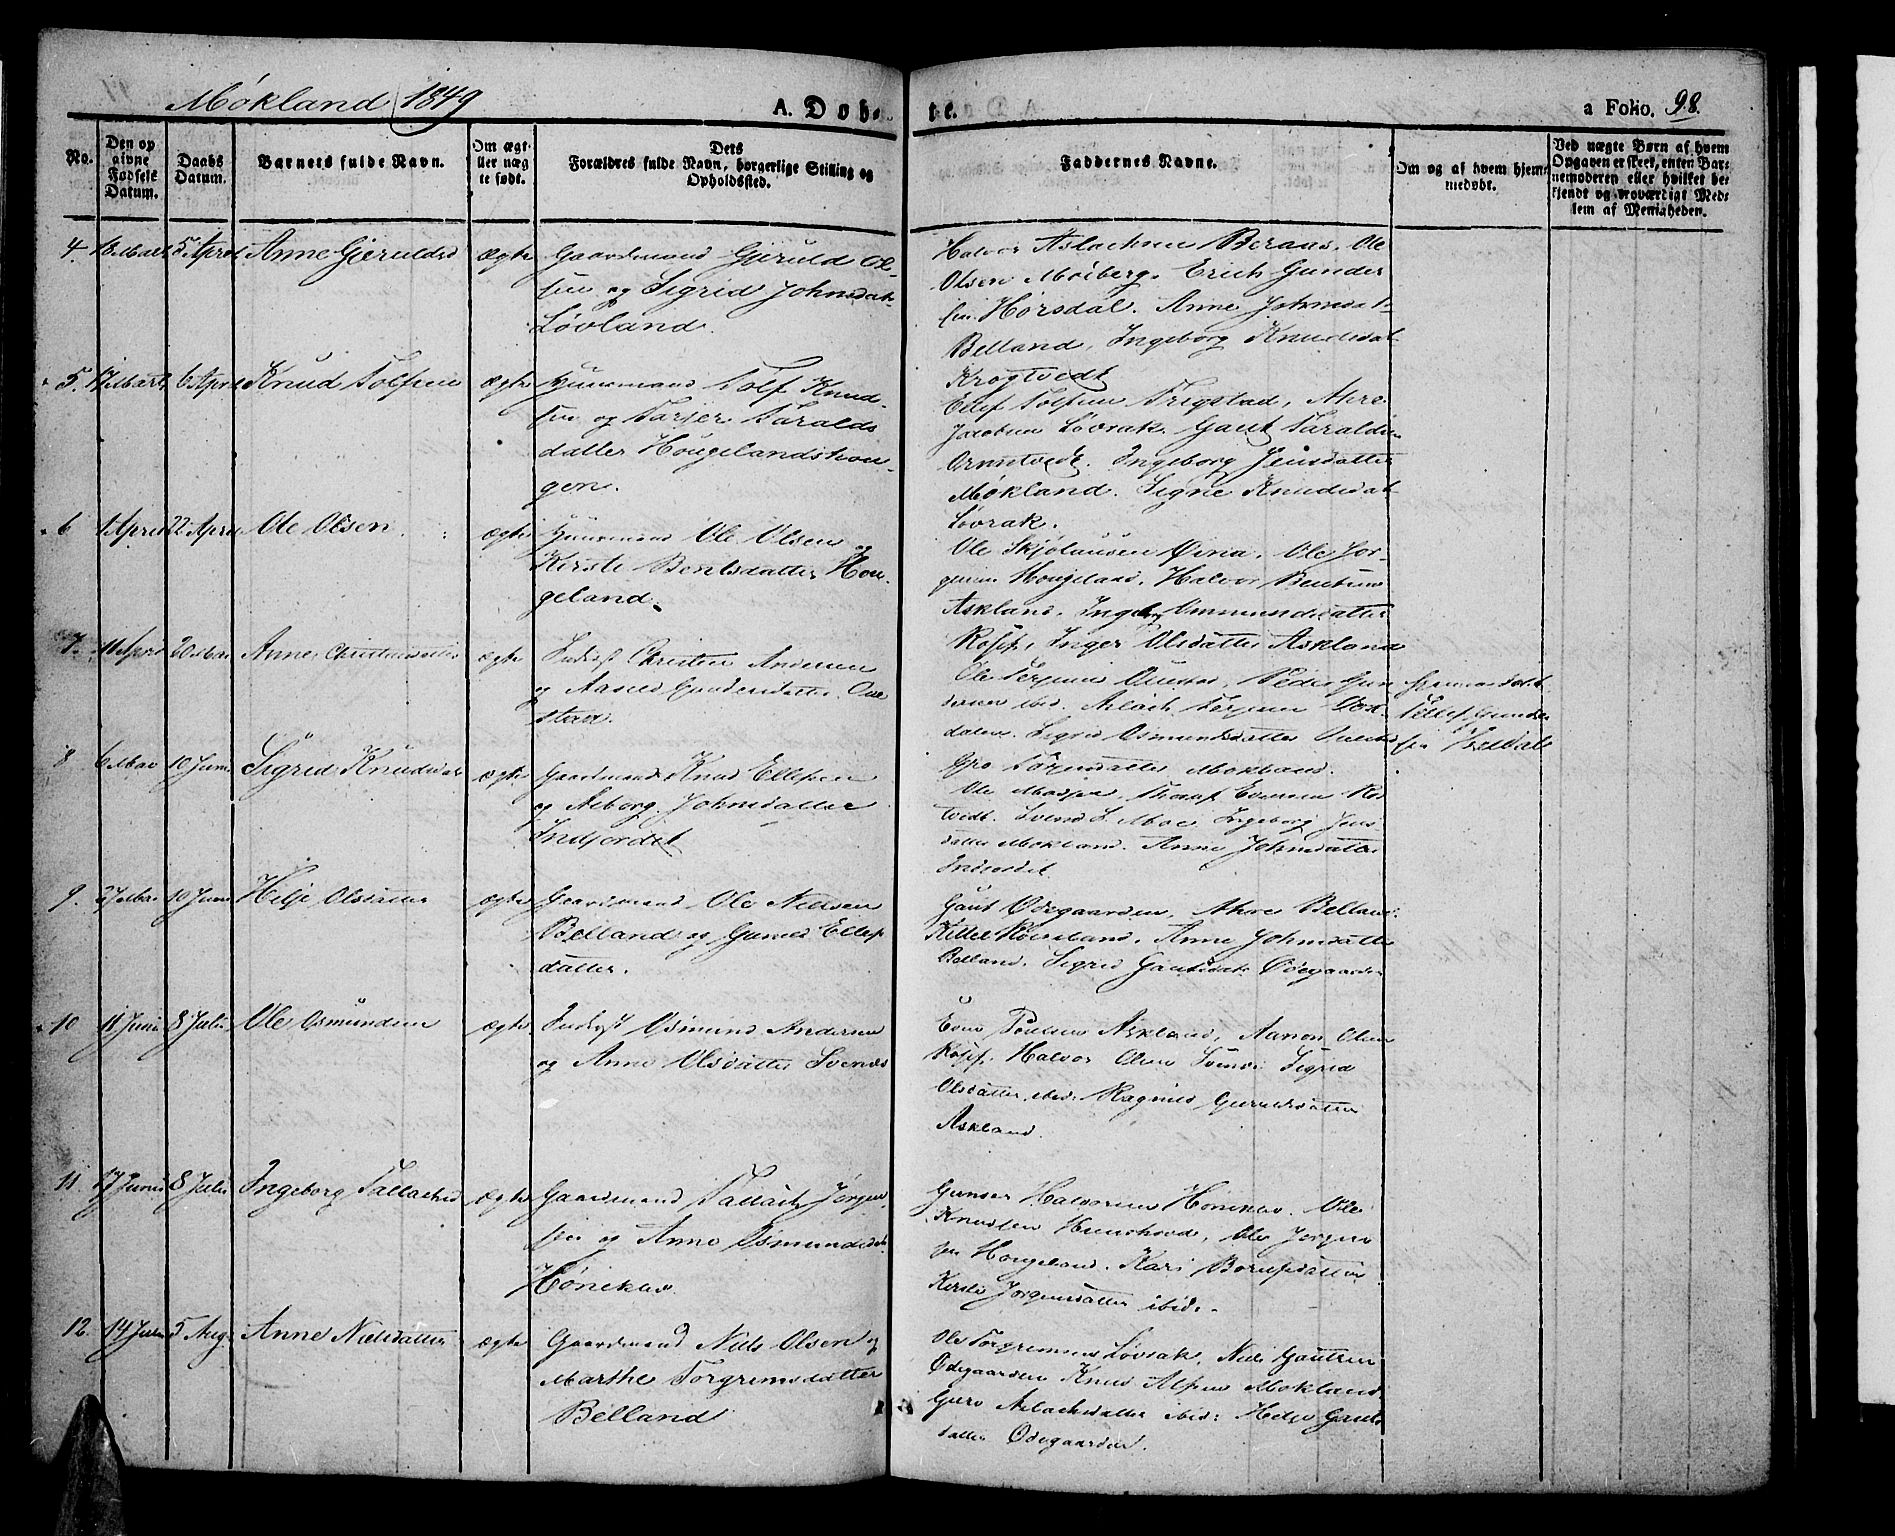 Mökland 1849
A. Døbte.
a Folio. 98.
No.
Den opgivne Fødsels Datum.
Daabs Datum.
Barnets fulde Navn.
Om ægte eller uægte født.
Dets Forældres fulde Navn, borgerlige Stilling og Opholdssted.
Faddernes Navne.
Om og af hvem hjemmedøbt.
Ved uægte Børn af hvem Opgaven er skeet, enten Barnemoderen eller hvilket bekjendt og troværdigt Medlem af Menigheden.
4. 5 April Anne Gjeruldsd ægte Gaardmand Gjeruld Ol-
sen og Sigrid Johnsdat
Løvland.
Halvor Aslachsen Beraas. Ole
Olsen Moiberg. Erich Gunder
sen Horsdal. Anne Johnsdat
Belland, Ingeborg Knudsdat
Krogtvedt
5. 17 Marts 6 April Knud Tolfsen ægte Huusmand Tolf Knud-
sen og Tarjer Taralds
datter Hougelandshou-
gen.
Ellef Tolfsen Trigstad, Ahre
Jacobsen Løvrak. Gaut Taralds
Ornntvedt. Ingeborg Jensdatter
Mökland. Signe Knudsdat
Løvrak.
6 1 April 22 April Ole Olsen. ægte Huusmand Ole Olsen og
Kirste Bentsdatter Hou-
geland.
Ole Skjolausen Ole Jor-
gensen Hougeland. Halvor Bentsen
Askland. Ingeborg Ommundsdatter
Røssp, Inger Olsdatter Askland
7. 11 April 20 Mai Anne Christensdatter ægte Inderst Christen Andersen
og Aasild Gundersdatter Ove
stad.
Ole Terjesen Ovestad. Peder Gun
dersen ibid. Aslach Terjesen
dalen. Sigrid Osmundsdatter Ovestad
Gro Mökland.
Tellef Gunder
sen
8 6 Mai 10 Juni Sigrid Knudsdat ægte Gaardmand Knud Ellefsen
og Aaborg Johnsdatter
Indjordet
Ole Evensen
tvedt. Svend S. Moe Ingeborg Jens
datter Mökland. Anne Johnsdatter
Indjordet
9. 27 Mai 10 Juni Helje Olsdatter ægte Gaardmand Ole Nielsen
Belland og Gunild Ellefs
datter.
Gaut Ødegaarden, Ahre Belland
Kittel Røisland. Anne Johnsdatter
Belland. Sigrid Gautsdat Ødegaarden
10 11 Juni 8 Juli Ole Osmundsen ægte Inderst Osmund Andersen
og Anne Olsdatter Svends
Even Poulsen Askland, Aanon Olsen
Røssp. Halvor Olsen Svends. Sigrid
Olsdatter ibid. Ragnild Gjeruldsdatter
Askland.
11 17 Juni 8 Juli Ingeborg Tallachsd ægte Gaardmand Tallach Jörgen
sen og Anne Osmundsdat
Høneklev.
Gunder Halvorsen Høneklev. Ole
Knudsen Ole Jorgen
sen Hougeland. Kari
Kirste Jorgensdatter ibid.
12. 14 Juli 5 Aug. Anne Nielsdatter ægte Gaardmand Niels Olsen og
Marthe Torgrimsdatter
Belland
Ole Torgrimsen Løvrak, Niels Gautsen
Ødegaarden Knud Alfsen Mökland
Guro Aslachsdatter ibid: Helje Gauts
datter Ødegaarden.